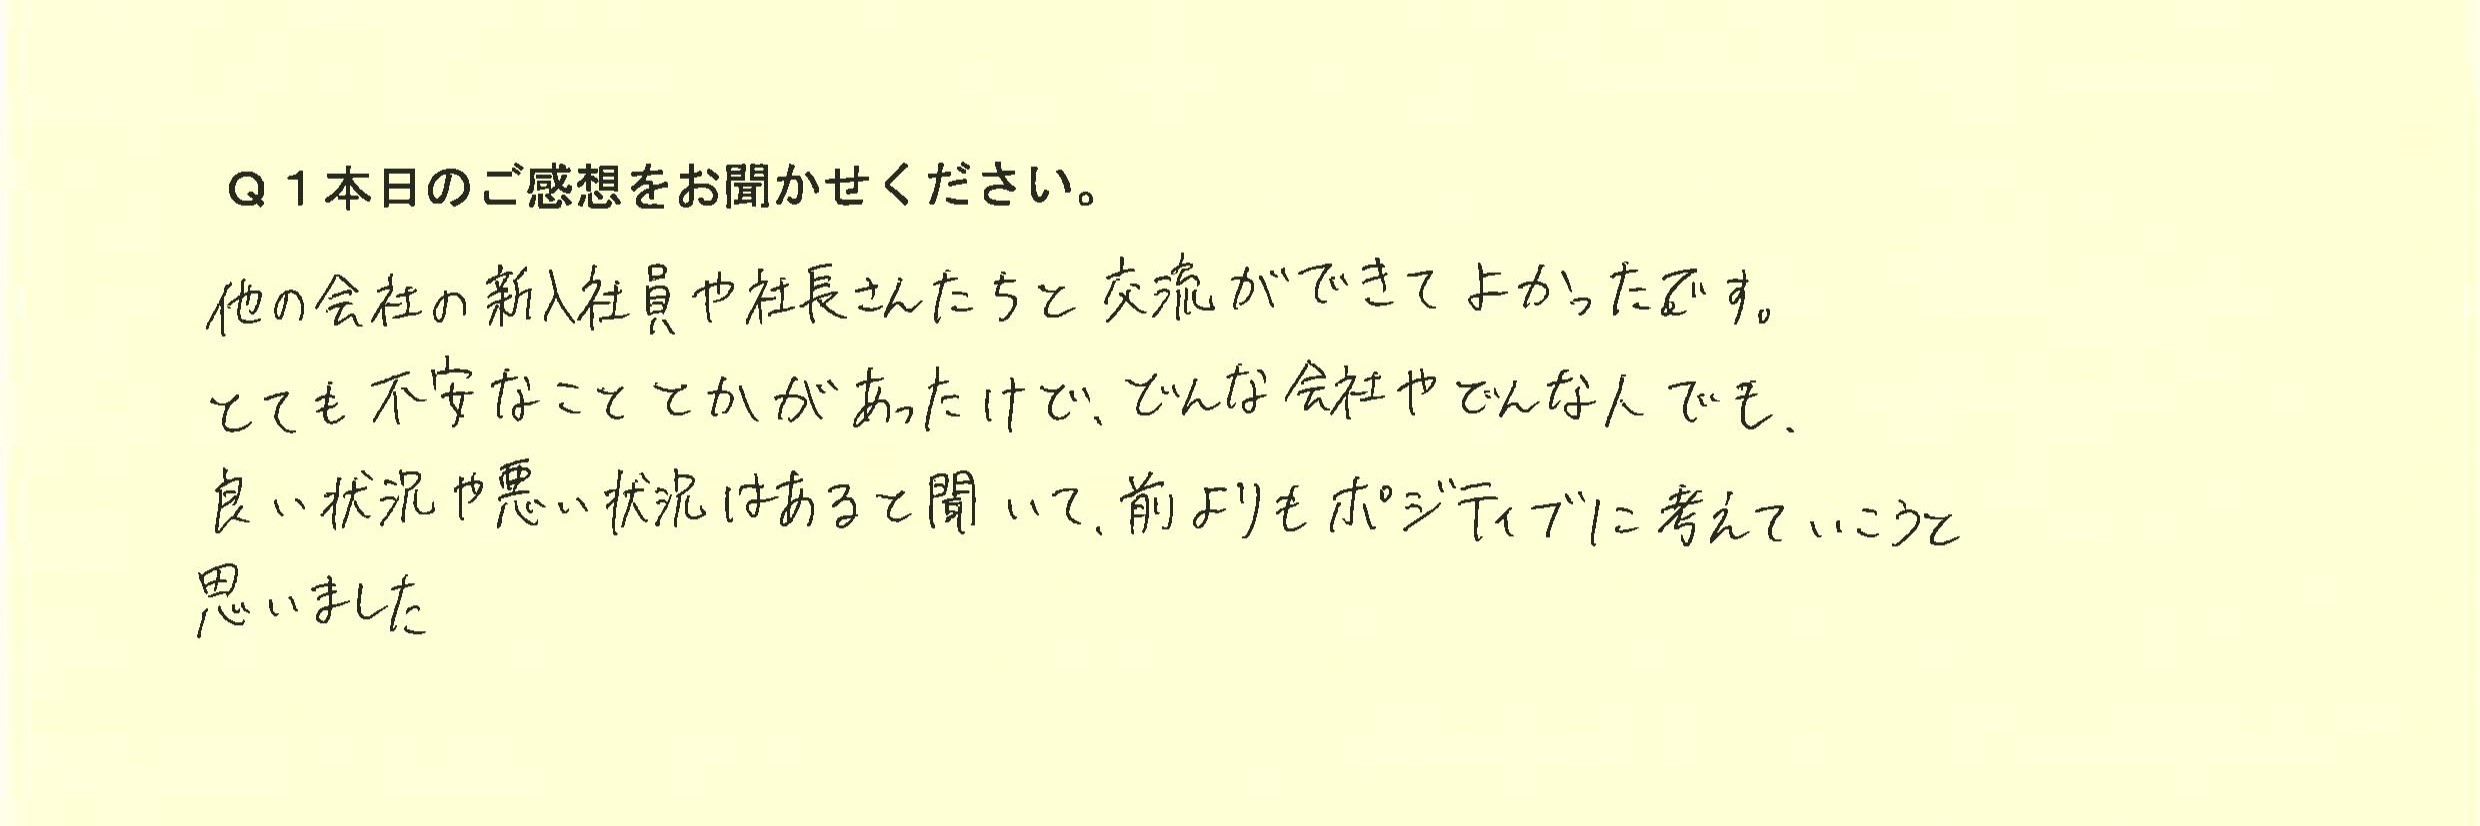 Q1本日のご感想をお聞かせください。
他の会社の新入社員や社長さんたちと交流ができてよかったです。
とても不安なこととかがあったけど、どんな会社やどんな人でも、
良い状況や悪い状況はあると聞いて、前よりもポジティブに考えていこうと
思いました